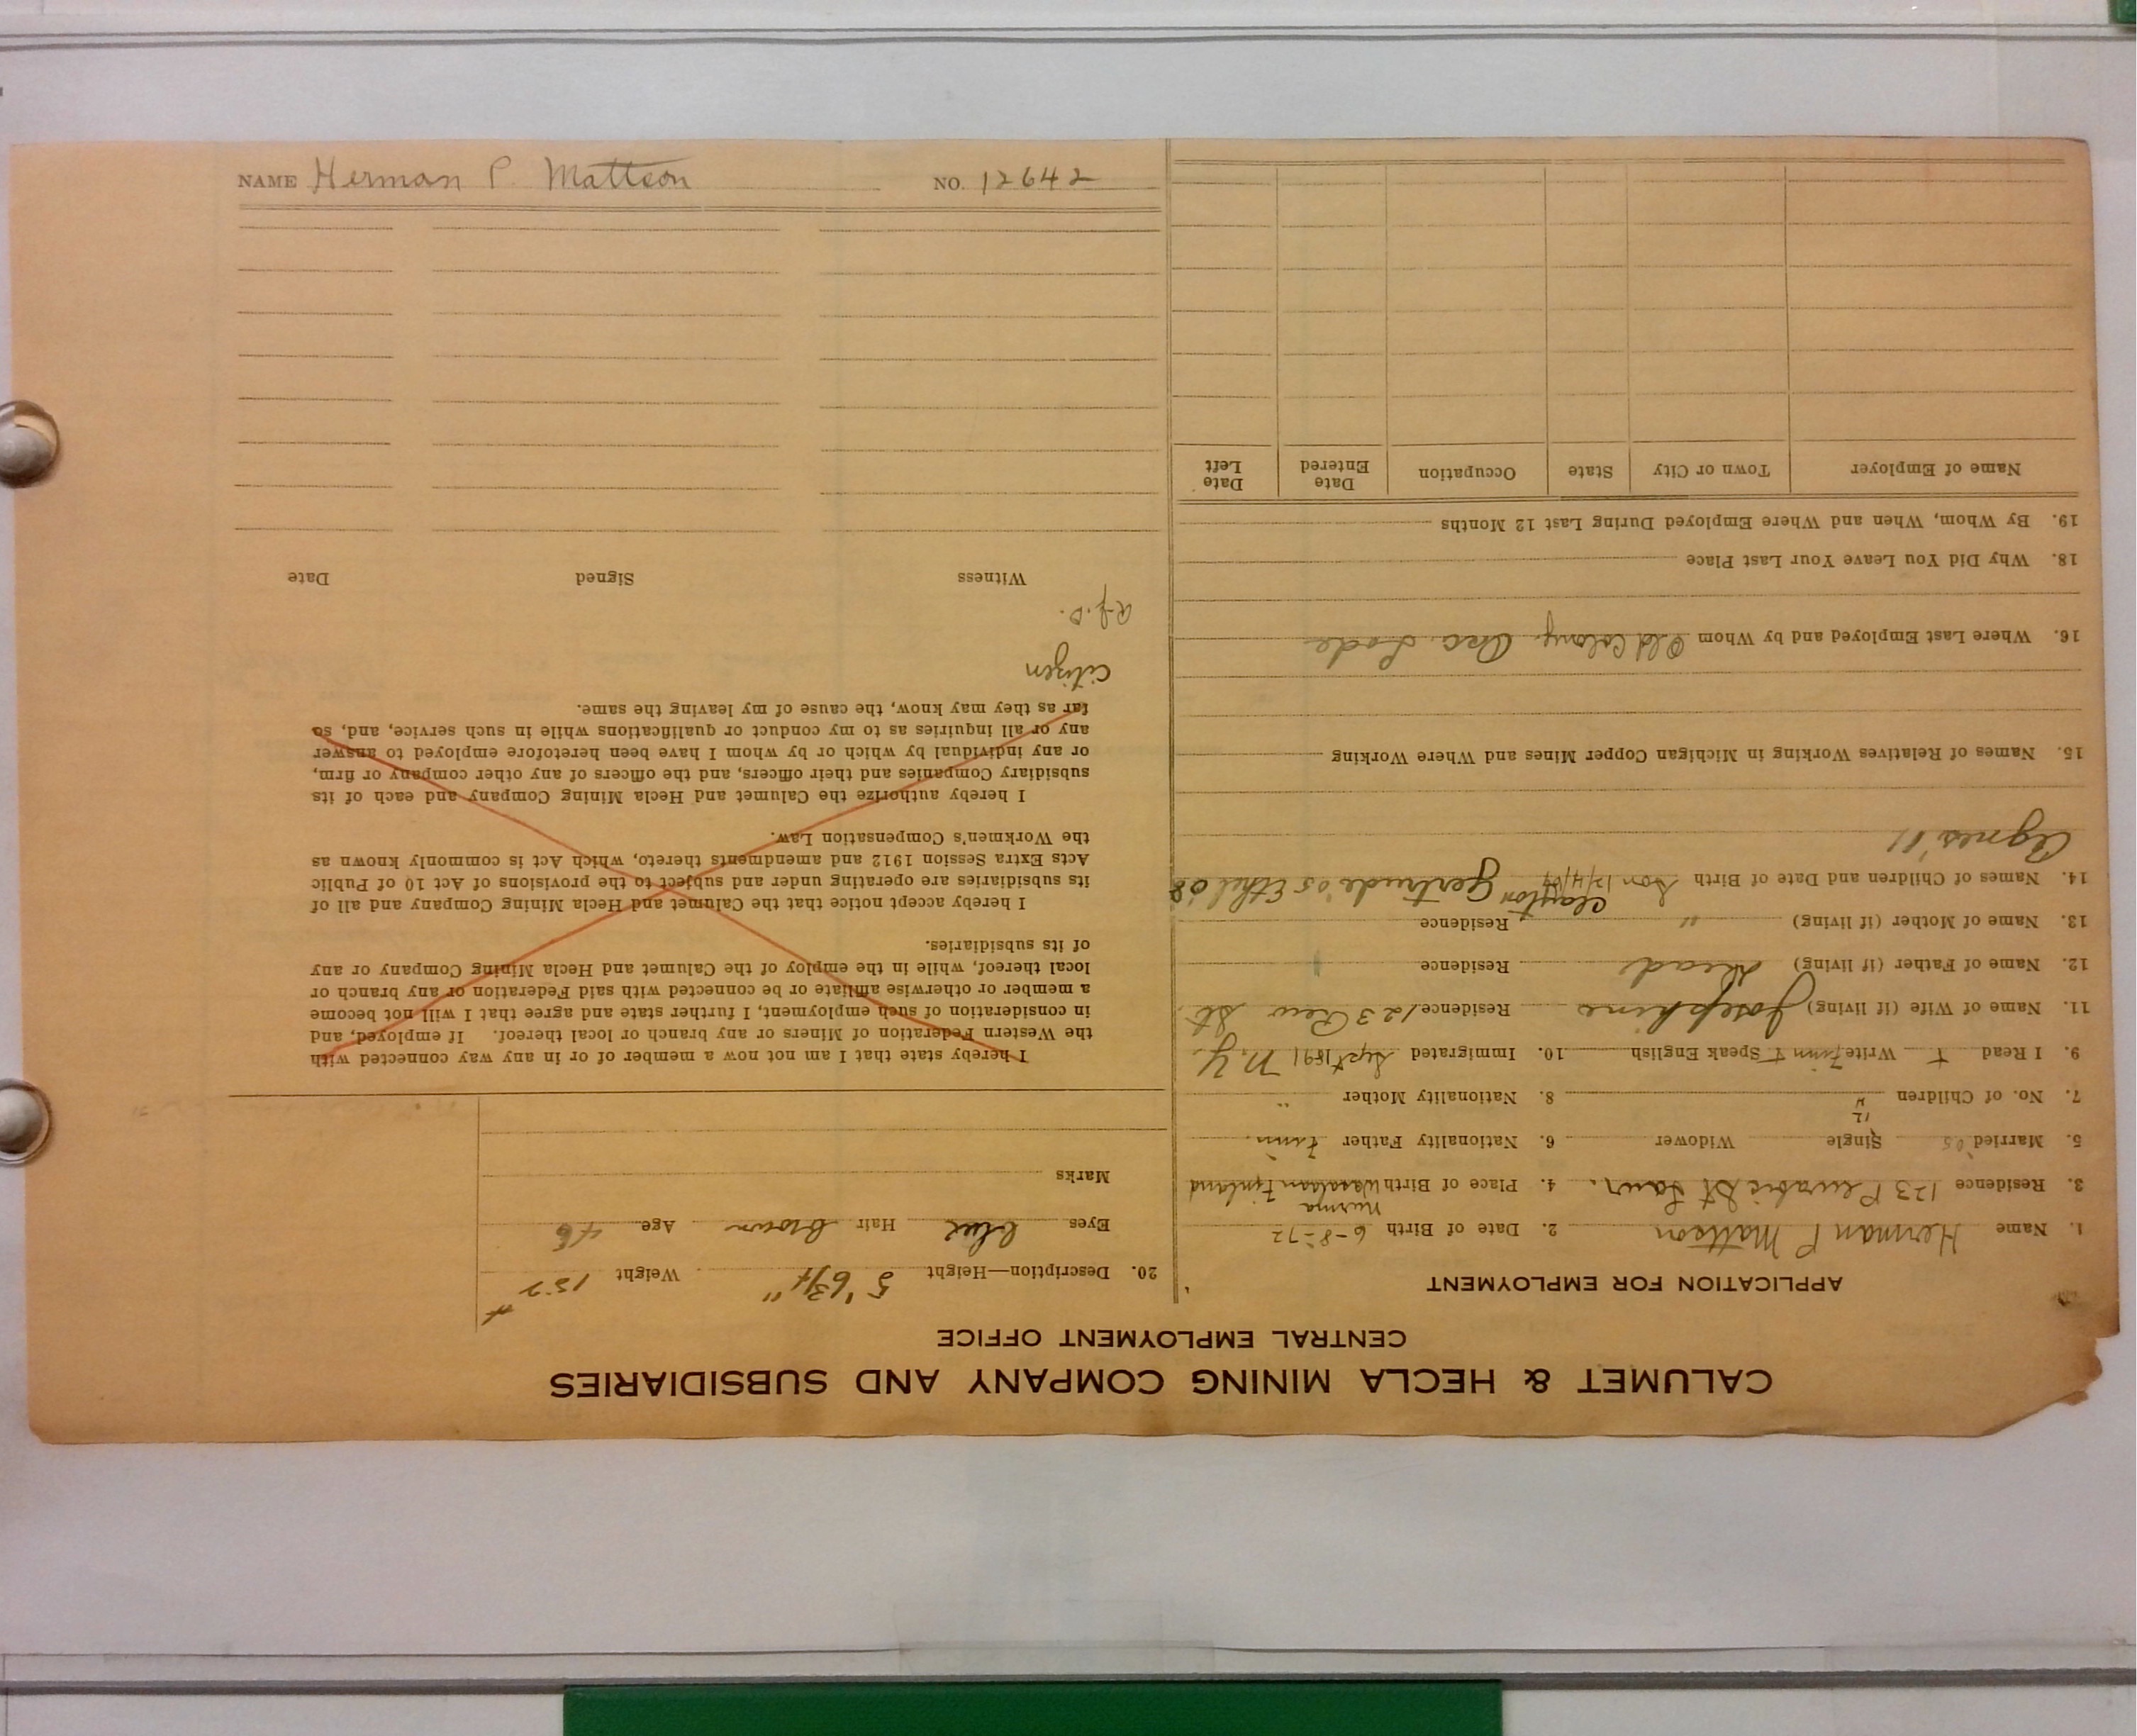 CALUMET & HECLA MINING COMPANY AND SUBSIDIARIES
CENTRAL EMPLOYMENT OFFICE
APPLICATION FOR EMPLOYMENT
1. Name Herman P Mattson 2. Date of Birth 6-8-72
Nurma
3. Residence 123 Pewabic St Laur. 4. Place of Birth Wasalaan Finland
5. Married 05 Single Widower 6. Nationality Father Finn.
12
7. No. of Children 4 8. Nationality Mother "
9. I Read + Write Finn + Speak English 10. Immigrated Sept 1891 N.Y.
11. Name of Wife (if living) Josephine Residence 123 Pew St.
12. Name of Father (if living) Dead Residence
13. Name of Mother (if living) " Residence
Clayton
14. Names of Children and Date of Birth Son 12/4/09 Gertrude '05 Ethel 08
Agnes '11
15. Names of Relatives Working in Michigan Copper Mines and Where Working
16. Where Last Employed and by Whom Old Colony. Osc. Lode
18. Why Did You Leave Your Last Place
19. By Whom, When and Where Employed During Last 12 Months
Name of Employer Town or City State Occupation Date Entered Date Left
20. Description—Height 5' 6 3/4" Weight 157
Eyes blue Hair brown Age 46
Marks
I hereby state that I am not now a member of or in any way connected with
the Western Federation of Miners or any branch or local thereof. If employed, and
in consideration of such employment, I further state and agree that I will not become
a member or otherwise affiliate or be connected with said Federation or any branch or
local thereof, while in the employ of the Calumet and Hecla Mining Company or any
of its subsidiaries.
I hereby accept notice that the Calumet and Hecla Mining Company and all of
its subsidiaries are operating under and subject to the provisions of Act 10 of Public
Acts Extra Session 1912 and amendments thereto, which Act is commonly known as
the Workmen's Compensation Law.
I hereby authorize the Calumet and Hecla Mining Company and each of its
subsidiary Companies and their officers, and the officers of any other company or firm,
or any individual by which or by whom I have been heretofore employed to answer
any or all inquiries as to my conduct or qualifications while in such service, and, so
far as they may know, the cause of my leaving the same.
Citizen
Witness Signed Date
NAME Herman P. Mattson NO. 12642